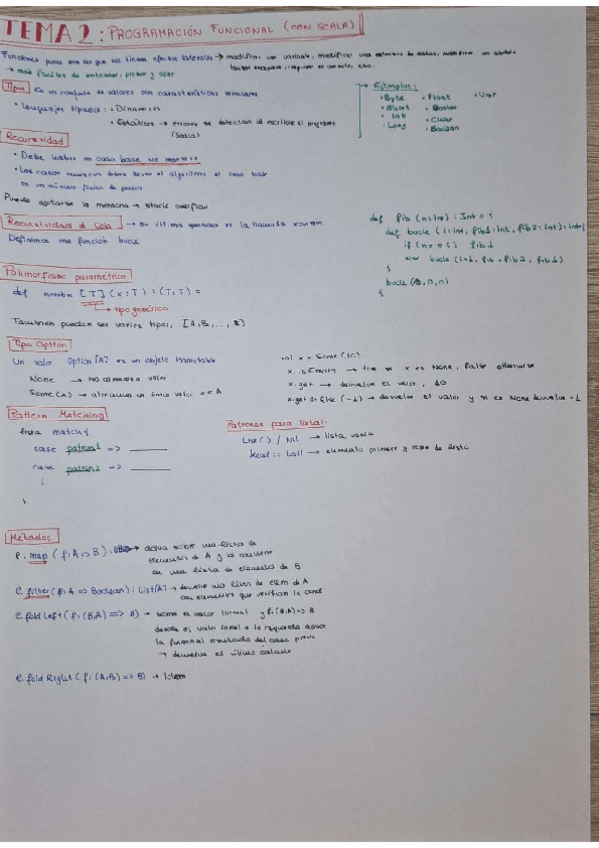 TEMA 2: PROGRAMACIÓN FUNCIONAL (CON SCALA)
Funciones puras son las que no tienen efectos laterales → modificar una variable, modificar una estructura de datos, modificar un
→ más fáciles de entender, probar y usar
Tipo Es un conjunto de valores con características similares
• Lenguajes tipados: • Dinámicos
• Estáticos → errores se detectan al escribir el programa
(Scala)
Ejemplos:
• Byte • Float • Unit
• Short • Double
• Int • Char
• Long • Boolean
Recursividad
• Debe haber un caso base
• Los casos recursivos deben llevar al algoritmo al caso base
en un número finito de pasos
Puede agotarse la memoria → stack overflow
Recursividad de Cola → su última operación es la llamada recursiva
Definimos una función bucle
def fib (n:Int): Int = {
def bucle (i:Int, fib1:Int, fib2:Int):Int={
fib1
bucle (i+1, fib1+fib2, fib1)
}
bucle
}
Polimorfismo paramétrico
def nombre [T] (x:T) : (T,T) =
→ tipo genérico
También pueden ser varios tipos, [A,B,...,
Tipo Option
Un valor Option[A] es un objeto inmutable
None → No almacena valor
Some(x) → almacena un único valor x ∈ A
val x = Some(10)
x.isEmpty → true si x es None, false
x.get → devuelve el valor, 10
x.getOrElse (-1) → devuelve el valor y si es None devuelve -1
Pattern Matching
lista match {
case patron1 =>
case patron2 =>
}
Patrones para listas:
List() / Nil → lista vacía
head :: tail → elemento primero y resto de lista
Métodos
l.map (f:A=>B): → actúa sobre una lista de
elementos de A y la convierte
en una lista de elementos de B
l.filter(f:A => Boolean): List[A] → devuelve una lista de elem de A
con elementos que verifican la cond
l.foldLeft (f:(B,A) => B) → toma el valor inicial y f:(B,A)=>B
desde el valor inicial a la izquierda aplica
la función al resultado del caso previo
→ devuelve el último cálculo
l.foldRight (f:(A,B)=>B) → Idem